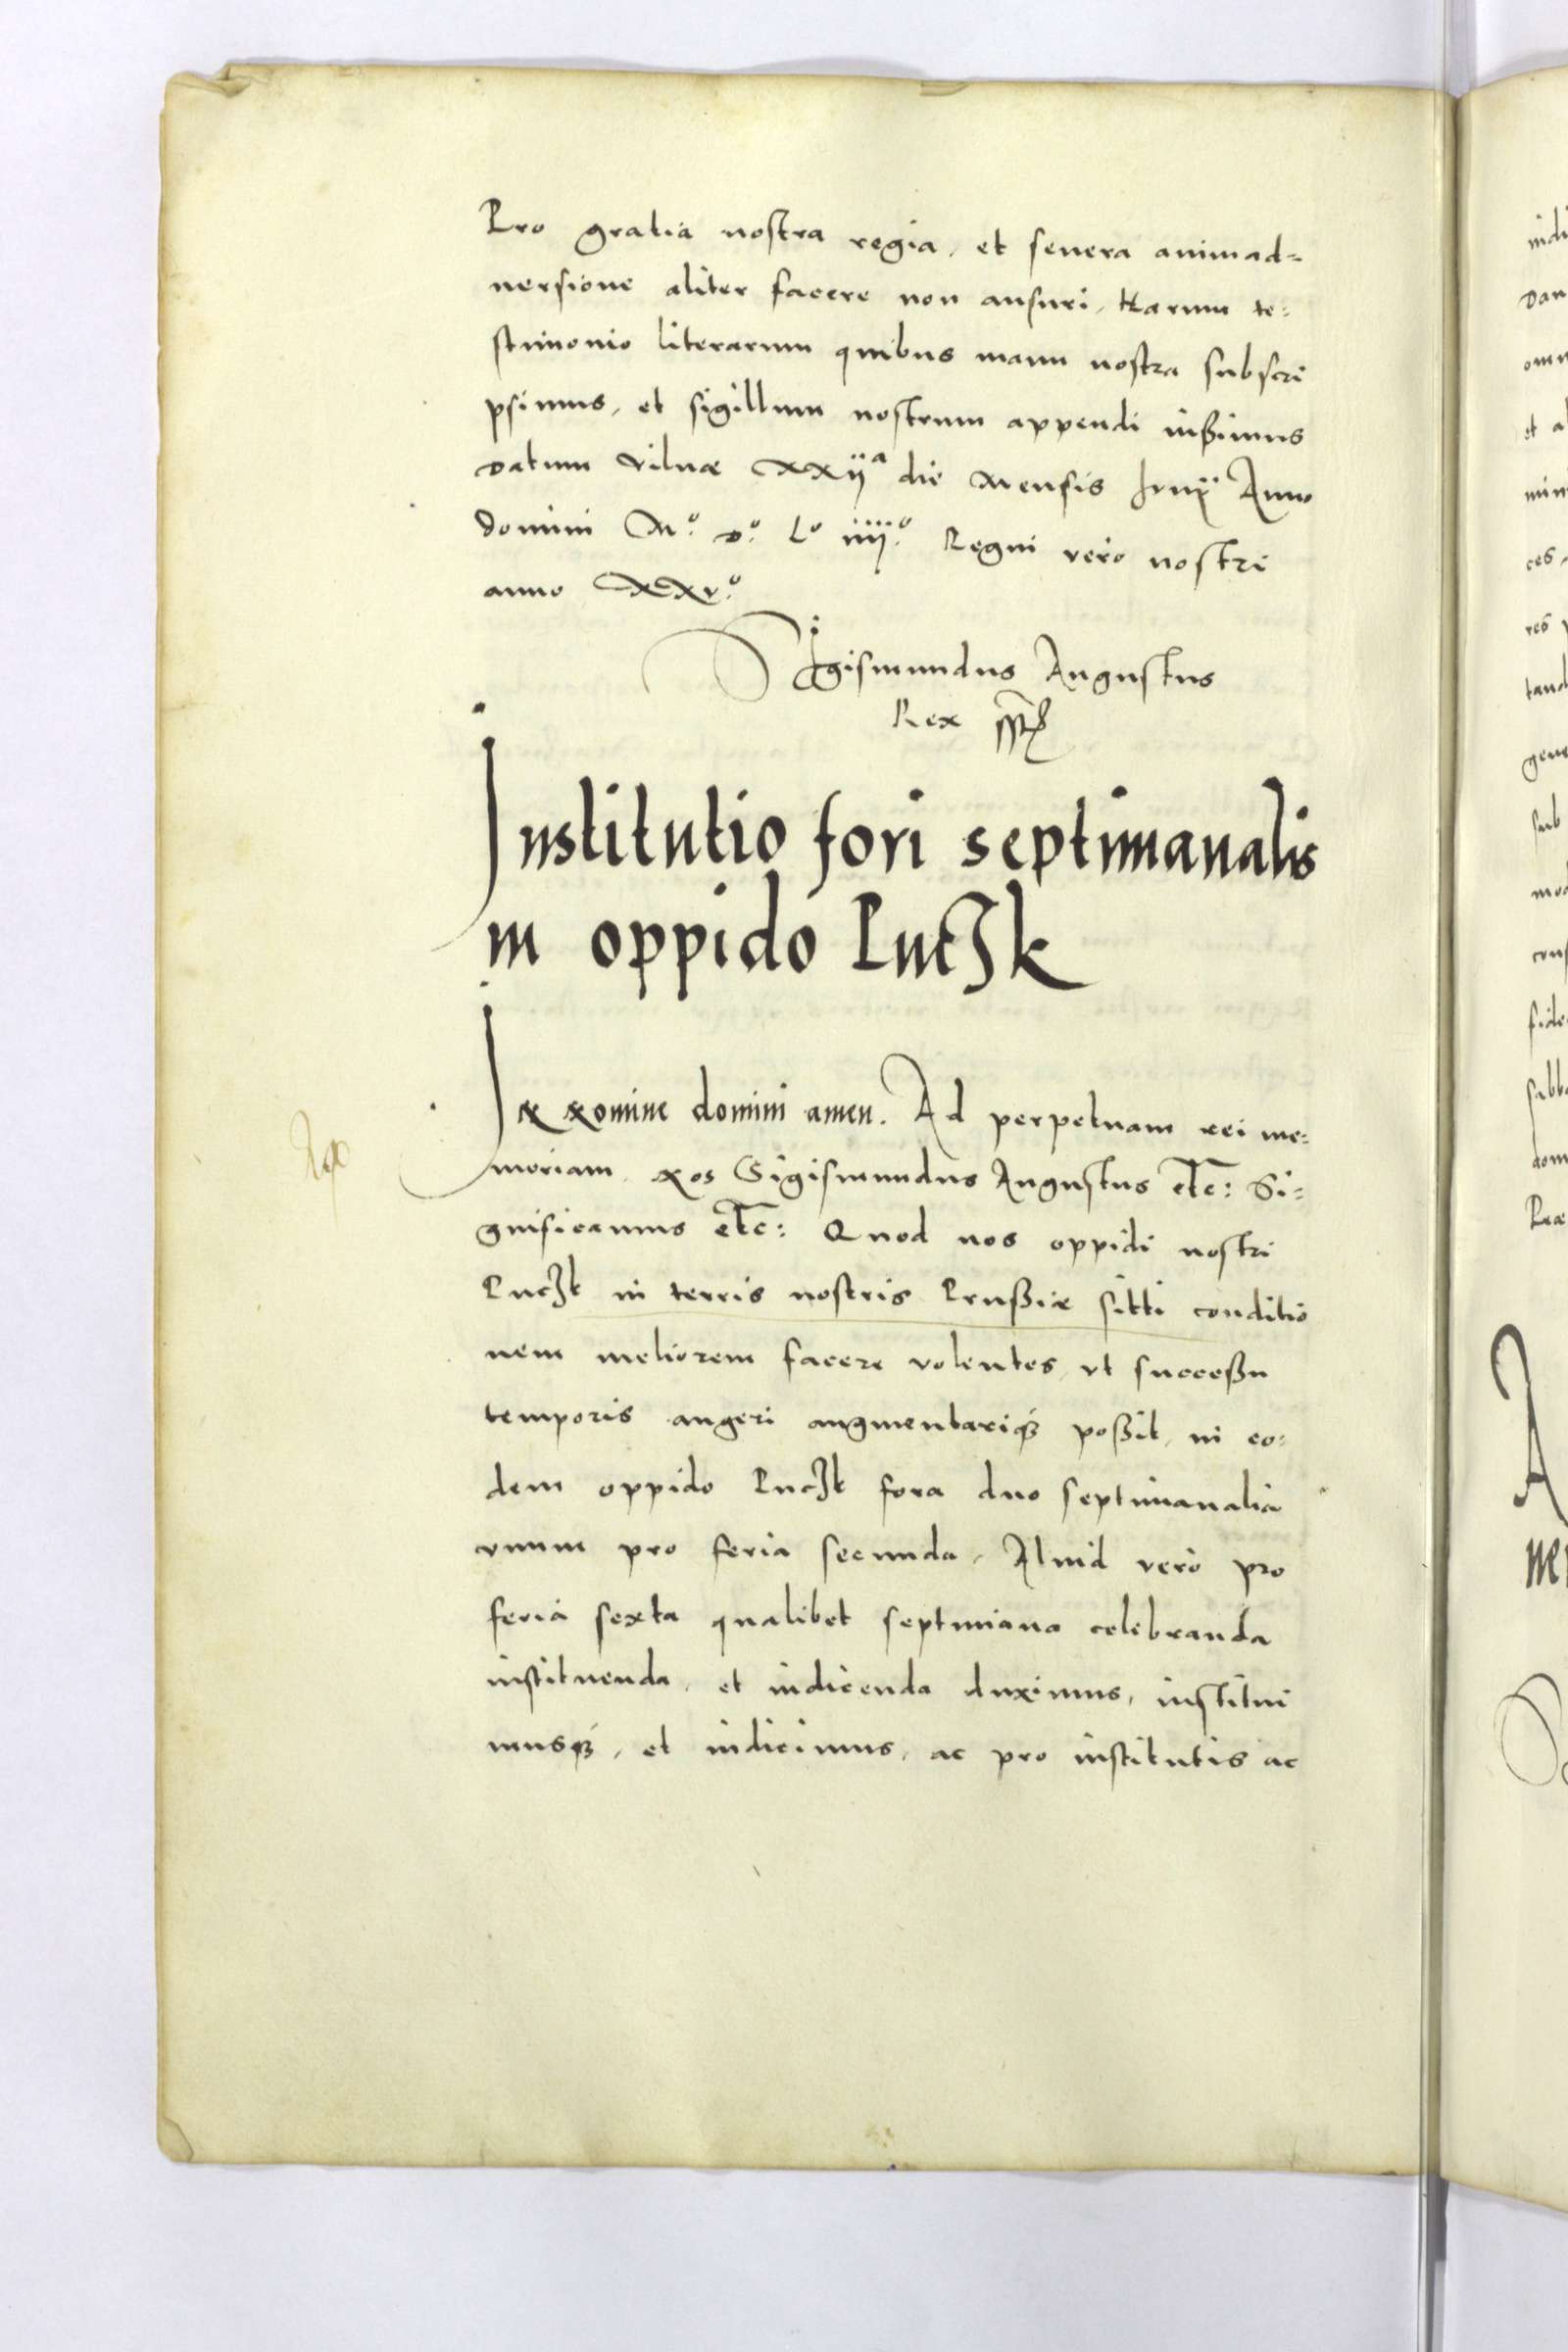 Pro gratia nostra regia, et seuera animad=
uersione aliter facere non ausuri, Harum te=
stimonio literarum quibus manu nostra subscri
psimus, et sigillum nostrum appendi iußimus
Datum Vilnæ XXijª die Mensis Junij Anno
domini Mº Dº Lº iiijº Regni vero nostri
anno XXvº
Sigismundus Augustus
Rex
Institutio fori septimanalis
in oppido Puczk
In Nomine domini amen. Ad perpetuam rei me=
moriam, Nos Sigismundus Augustus etc: Si=
gnificamus etc: Quod nos oppidi nostri
Puczk in terris nostris Prußiæ sitti conditio
nem meliorem facere volentes, vt succeßu
temporis augeri augmentariq3 poßit, in eo=
dem oppido Puczk fora duo septimanalia
vnum pro feria secunda, Aliud vero pro
feria sexta qualibet septimana celebranda
instituenda, et indicenda duximus, institui
musq3, et indicimus, ac pro institutis ac